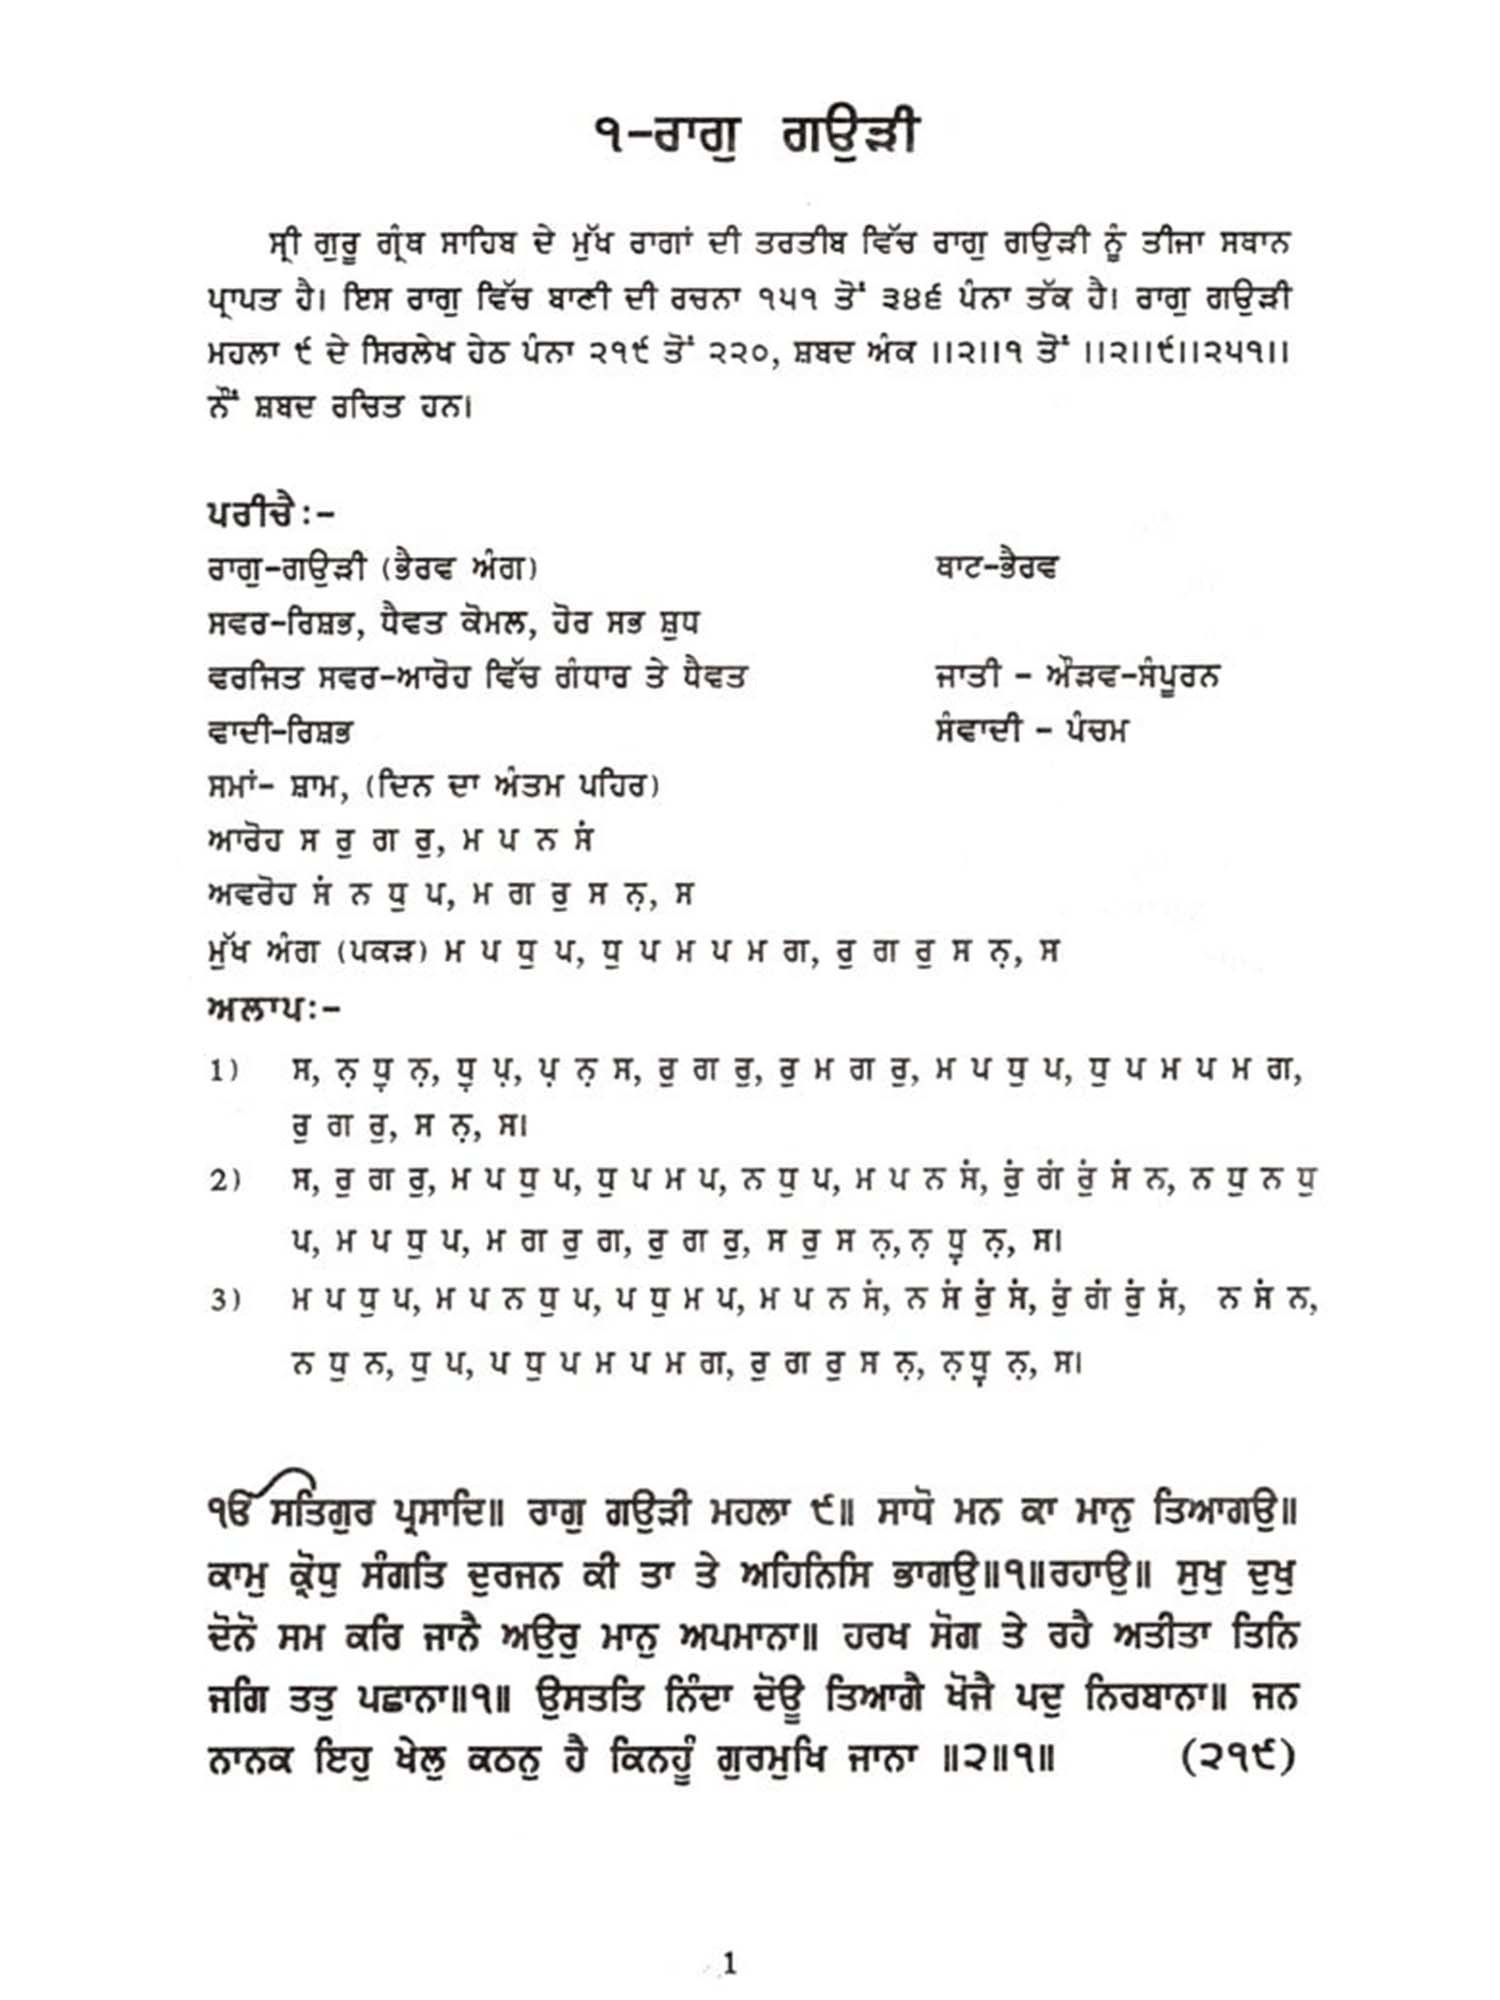 ੧-ਰਾਗੁ ਗਉੜੀ
ਸ੍ਰੀ ਗੁਰੂ ਗ੍ਰੰਥ ਸਾਹਿਬ ਦੇ ਮੁੱਖ ਰਾਗਾਂ ਦੀ ਤਰਤੀਬ ਵਿੱਚ ਰਾਗੁ ਗਉੜੀ ਨੂੰ ਤੀਜਾ ਸਥਾਨ
ਪ੍ਰਾਪਤ ਹੈ। ਇਸ ਰਾਗੁ ਵਿੱਚ ਬਾਣੀ ਦੀ ਰਚਨਾ ੧੫੧ ਤੋਂ ੩੪੬ ਪੰਨਾ ਤੱਕ ਹੈ। ਰਾਗੁ ਗਉੜੀ
ਮਹਲਾ ੯ ਦੇ ਸਿਰਲੇਖ ਹੇਠ ਪੰਨਾ ੨੧੯ ਤੋਂ ੨੨੦, ਸ਼ਬਦ ਅੰਕ ।।੨।।੧ ਤੋਂ ।।੨।।੯।।੨੫੧।।
ਨੌਂ ਸ਼ਬਦ ਰਚਿਤ ਹਨ।
ਪਰੀਚੈ:-
ਰਾਗੁ-ਗਉੜੀ (ਭੈਰਵ ਅੰਗ) ਥਾਟ-ਭੈਰਵ
ਸਵਰ-ਰਿਸ਼ਭ, ਧੈਵਤ ਕੋਮਲ, ਹੋਰ ਸਭ ਸ਼ੁਧ
ਵਰਜਿਤ ਸਵਰ-ਆਰੋਹ ਵਿੱਚ ਗੰਧਾਰ ਤੇ ਧੈਵਤ ਜਾਤੀ - ਔੜਵ-ਸੰਪੂਰਨ
ਵਾਦੀ-ਰਿਸ਼ਭ ਸੰਵਾਦੀ - ਪੰਚਮ
ਸਮਾਂ- ਸ਼ਾਮ, (ਦਿਨ ਦਾ ਅੰਤਮ ਪਹਿਰ)
ਆਰੋਹ ਸ ਰੁ ਗ ਰੁ, ਮ ਪ ਨ ਸਂ
ਅਵਰੋਹ ਸਂ ਨ ਧੁ ਪ, ਮ ਗ ਰੁ ਸ ਨ਼, ਸ
ਮੁੱਖ ਅੰਗ (ਪਕੜ) ਮ ਪ ਧੁ ਪ, ਧੁ ਪ ਮ ਪ ਮ ਗ, ਰੁ ਗ ਰੁ ਸ ਨ਼, ਸ
ਅਲਾਪ:-
1) ਸ, ਨ਼ ਧ਼ੁ ਨ਼, ਧ਼ੁ ਪ਼, ਪ਼ ਨ਼ ਸ, ਰੁ ਗ ਰੁ, ਰੁ ਮ ਗ ਰੁ, ਮ ਪ ਧੁ ਪ, ਧੁ ਪ ਮ ਪ ਮ ਗ,
ਰੁ ਗ ਰੁ, ਸ ਨ਼, ਸ।
2) ਸ, ਰੁ ਗ ਰੁ, ਮ ਪ ਧੁ ਪ, ਧੁ ਪ ਮ ਪ, ਨ ਧੁ ਪ, ਮ ਪ ਨ ਸਂ, ਰੁਂ ਗਂ ਰੁਂ ਸਂ ਨ, ਨ ਧੁ ਨ ਧੁ
ਪ, ਮ ਪ ਧੁ ਪ, ਮ ਗ ਰੁ ਗ, ਰੁ ਗ ਰੁ, ਸ ਰੁ ਸ ਨ਼, ਨ਼ ਧ਼ੁ ਨ਼, ਸ।
3) ਮ ਪ ਧੁ ਪ, ਮ ਪ ਨ ਧੁ ਪ, ਪ ਧੁ ਮ ਪ, ਮ ਪ ਨ ਸਂ, ਨ ਸਂ ਰੁਂ ਸਂ, ਰੁਂ ਗਂ ਰੁਂ ਸਂ, ਨ ਸਂ ਨ,
ਨ ਧੁ ਨ, ਧੁ ਪ, ਪ ਧੁ ਪ ਮ ਪ ਮ ਗ, ਰੁ ਗ ਰੁ ਸ ਨ਼, ਨ਼ਧ਼ੁ ਨ਼, ਸ।
ੴ ਸਤਿਗੁਰ ਪ੍ਰਸਾਦਿ॥ ਰਾਗੁ ਗਉੜੀ ਮਹਲਾ ੯॥ ਸਾਧੋ ਮਨ ਕਾ ਮਾਨੁ ਤਿਆਗਉ॥
ਕਾਮੁ ਕ੍ਰੋਧੁ ਸੰਗਤਿ ਦੁਰਜਨ ਕੀ ਤਾ ਤੇ ਅਹਿਨਿਸਿ ਭਾਗਉ॥੧॥ਰਹਾਉ॥ ਸੁਖੁ ਦੁਖੁ
ਦੋਨੋ ਸਮ ਕਰਿ ਜਾਨੈ ਅਉਰੁ ਮਾਨੁ ਅਪਮਾਨਾ॥ ਹਰਖ ਸੋਗ ਤੇ ਰਹੈ ਅਤੀਤਾ ਤਿਨਿ
ਜਗਿ ਤਤੁ ਪਛਾਨਾ॥੧॥ ਉਸਤਤਿ ਨਿੰਦਾ ਦੋਊ ਤਿਆਗੈ ਖੋਜੈ ਪਦੁ ਨਿਰਬਾਨਾ॥ ਜਨ
ਨਾਨਕ ਇਹੁ ਖੇਲੁ ਕਠਨੁ ਹੈ ਕਿਨਹੂੰ ਗੁਰਮੁਖਿ ਜਾਨਾ ॥੨॥੧॥ (੨੧੯)
1